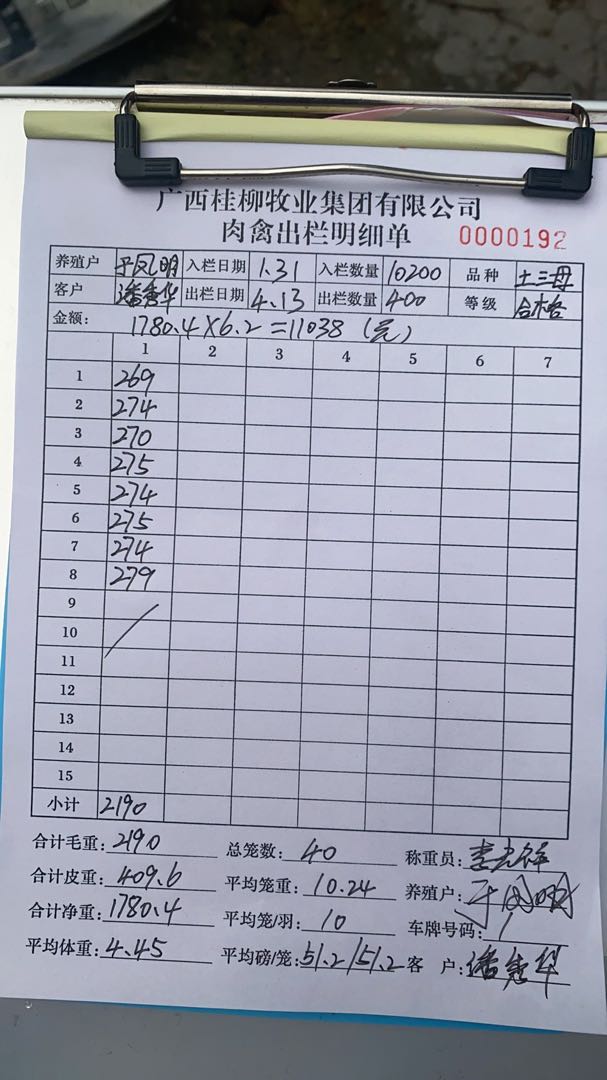 广西桂柳牧业集团有限公司
肉禽出栏明细单 0000192
养殖户 于凤明 入栏日期 1.31 入栏数量 10200 品种 土三母
客户 潘秀华 出栏日期 4.13 出栏数量 400 等级 合格
金额: 1780.4×6.2=11038(元)
1 2 3 4 5 6 7
1 269
2 274
3 270
4 275
5 274
6 275
7 274
8 279
9
10
11
12
13
14
15
小计 2190
合计毛重: 2190 总笼数: 40 称重员:
合计皮重: 409.6 平均笼重: 10.24 养殖户: 于凤明
合计净重: 1780.4 平均笼/羽: 10 车牌号码: 1
平均体重: 4.45 平均磅/笼: 51.2/51.2 客户: 潘秀华